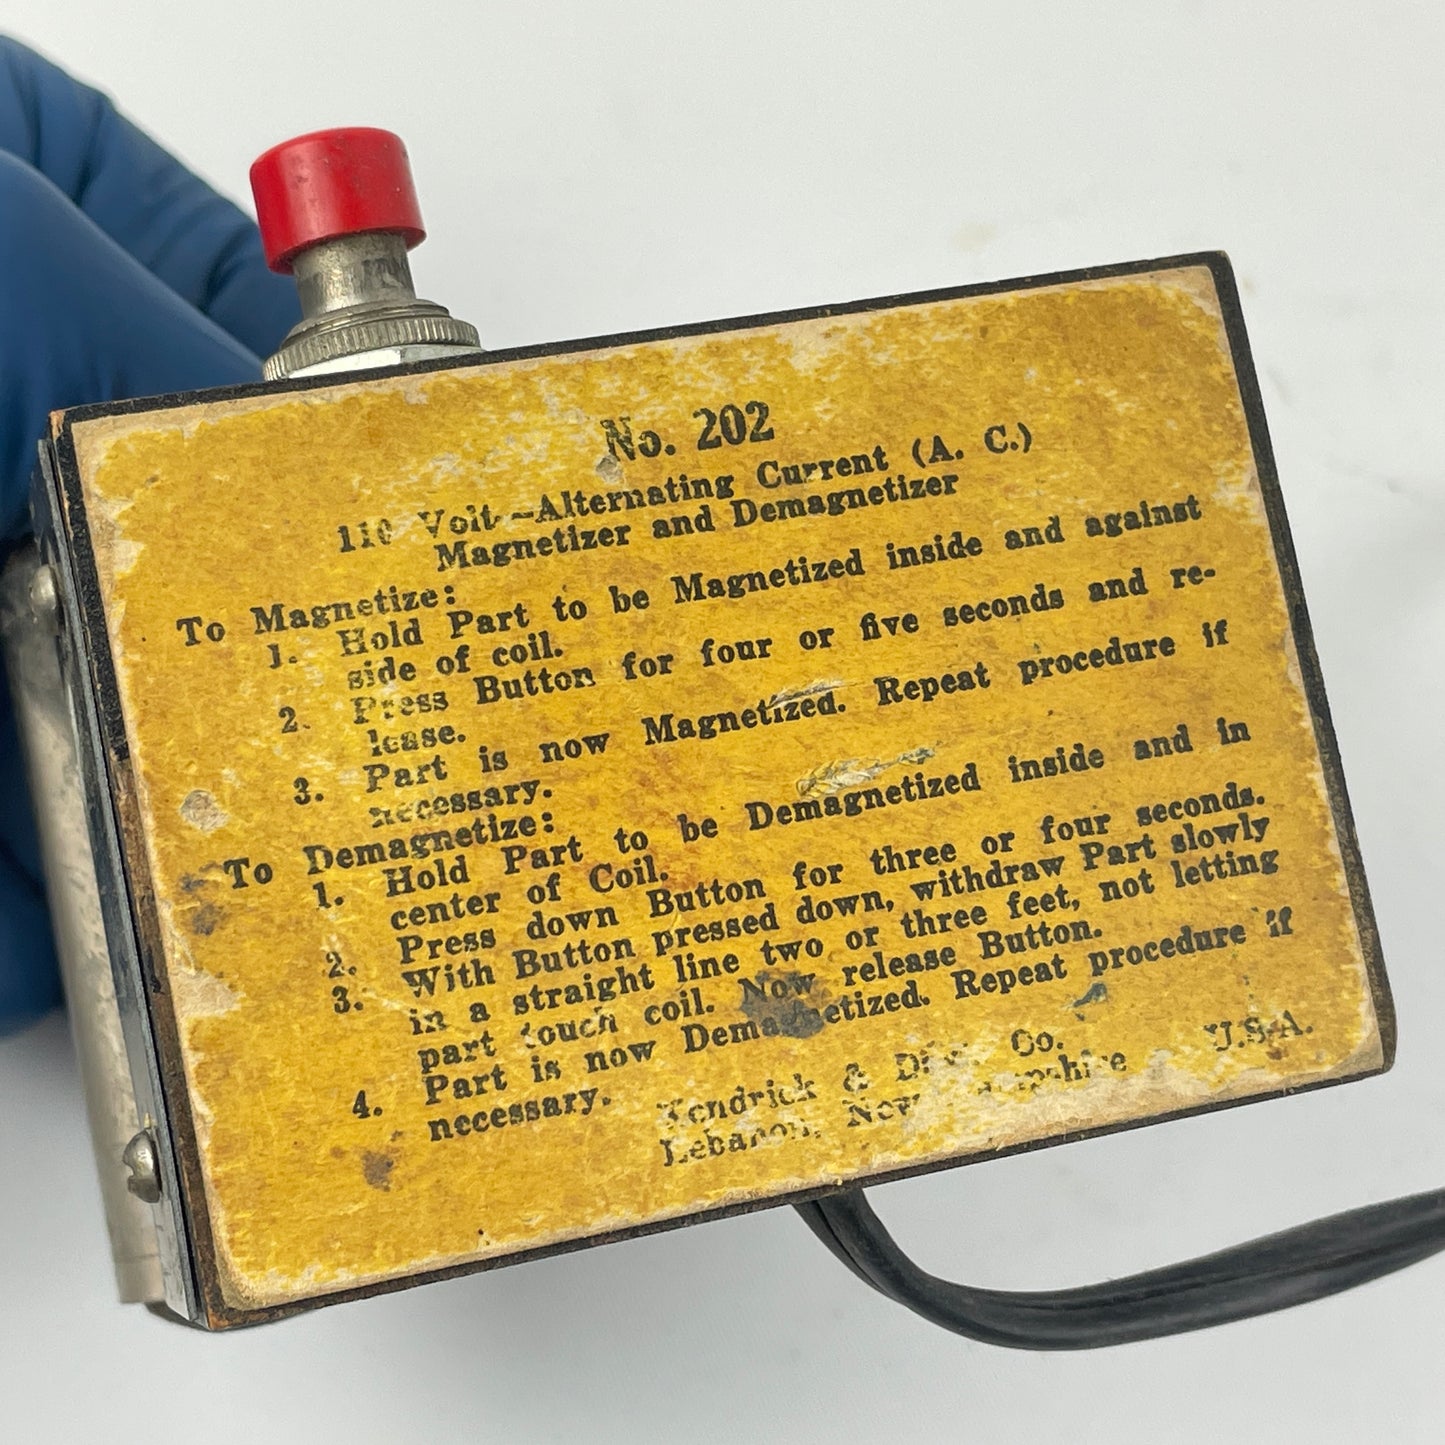 No. 202
110 Volt—Alternating Current (A. C.)
Magnetizer and Demagnetizer
To Magnetize:
1. Hold Part to be Magnetized inside and against
side of coil.
2. Press Button for four or five seconds and re-
lease.
3. Part is now Magnetized. Repeat procedure if
necessary.
To Demagnetize:
1. Hold Part to be Demagnetized inside and in
center of Coil.
2. Press down Button for three or four seconds.
3. With Button pressed down, withdraw Part slowly
in a straight line two or three feet, not letting
part touch coil. Now release Button.
4. Part is now Demagnetized. Repeat procedure if
necessary.
Kendrick & Davis Co.
Lebanon, New Hampshire U.S.A.